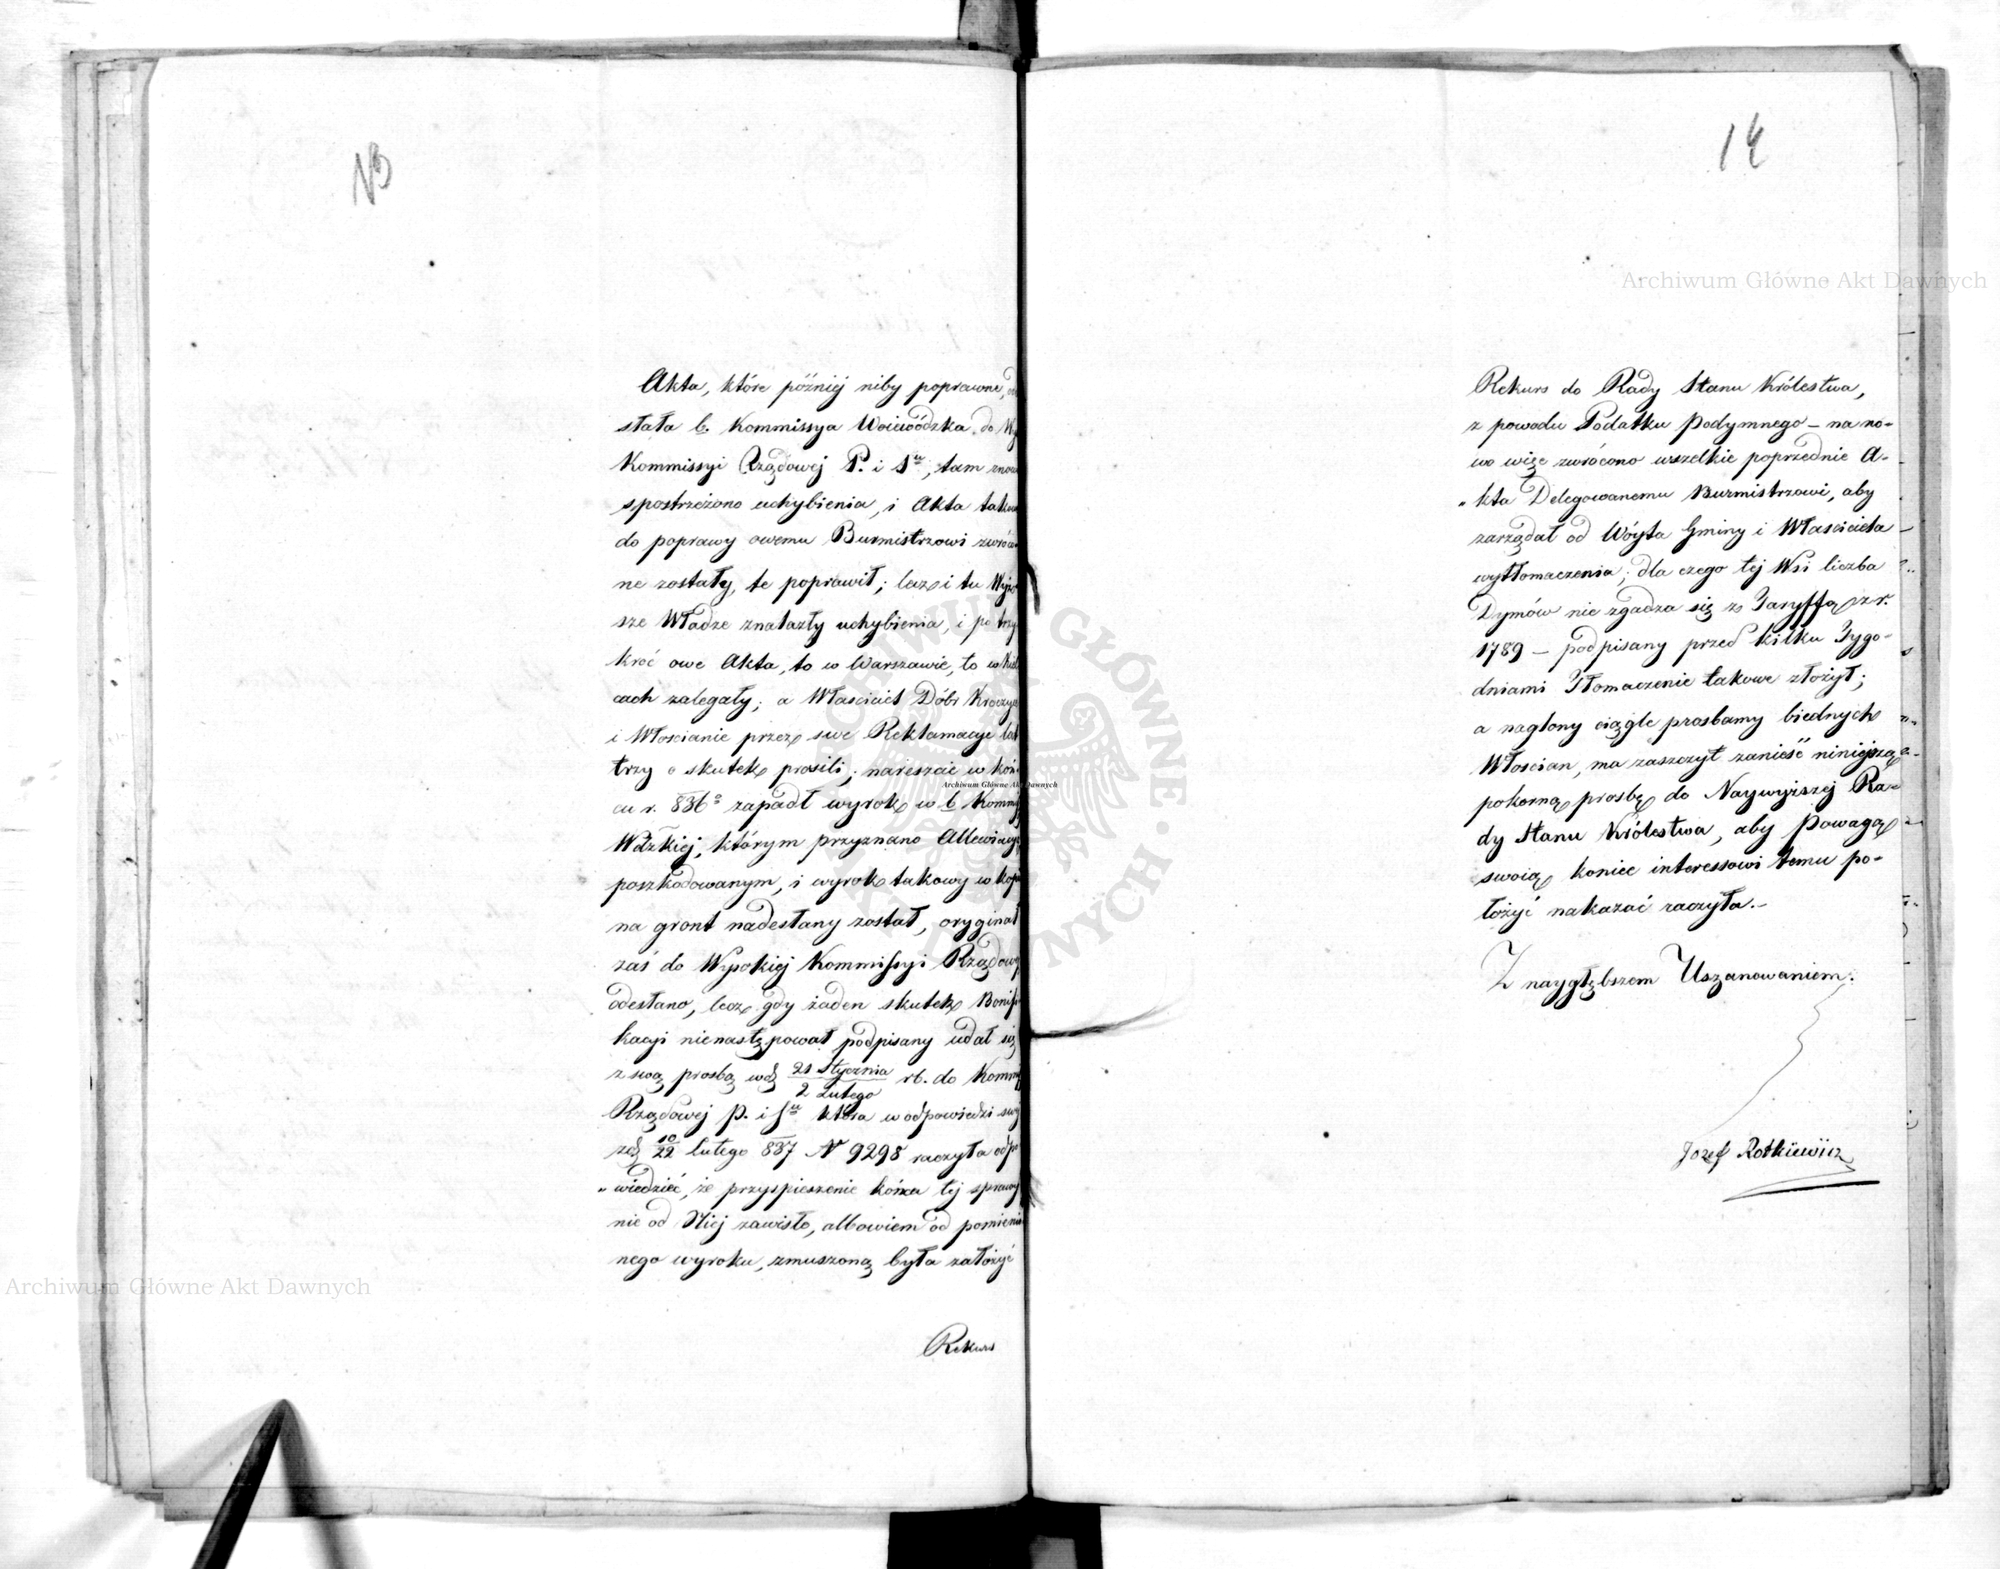 Akta, które póżniej niby poprawne,
słała b. Kommissya Woiewódzka do
Kommissyi Rządowej P. i S., tam
spostrzeżono uchybienia, i Akta
do poprawy owemu Burmistrzowi
ne zostały, te poprawił; lecz i tu Wyż
sze Władze znalazły uchybienia, i po trzy
kroć owe Akta, to w Warszawie, to w
cach zalegały; a Właściciel Dóbr
i Włoscianie przez swe Reklamacye
trzy o skutek prosili; nareszcie w koń
cu r. 836o zapadł wyrok w b. Kommis
Wdzkiej, którym przyznano
poszkodowanym, i wyrok takowy w
na gront nadesłany został, oryginał
zaś do Wysokiej Kommissyi Rządowej
odesłano, lecz gdy żaden skutek Bonifi
kacyi nienastępował podpisany udał się
z swą prosbą 21 Stycznia / 2 Lutego rb. do
Rządowej P. i S. która w odpowiedzi swej
10/22 Lutego 837 N 9298 raczyła odpo
„wiedzieć, że przyspieszenie końca tej sprawy
nie od Niej zawisło, albowiem od
nego wyroku, zmuszoną była założyć
Rekurs
14
Rekurs do Rady Stanu Królestwa,
z powodu Podatku Podymnego – na no-
wo więc zwrócono wszelkie poprzednie A-
„kta Delegowanemu Burmistrzowi, aby
zarządał od Wóyta Gminy i Właściciela
wytłomaczenia, dla czego tej Wsi liczba
Dymów nie zgadza się z Taryffą z r.
1789 – podpisany przed kilku Tygo-
dniami Tłomaczenie takowe złożył;
a naglony ciągle prosbamy biednych
Włoscian, ma zaszczyt zanieść niniejszą
pokorną prosbę do Naywyższej Ra-
dy Stanu Królestwa, aby Powagą
swoią koniec interessowi temu po-
łożyć nakazać raczyła.-
Z naygłębszem Uszanowaniem.
Jozef Rotkiewicz
Archiwum Główne Akt Dawnych
Archiwum Główne Akt Dawnych
Archiwum Główne Akt Dawnych